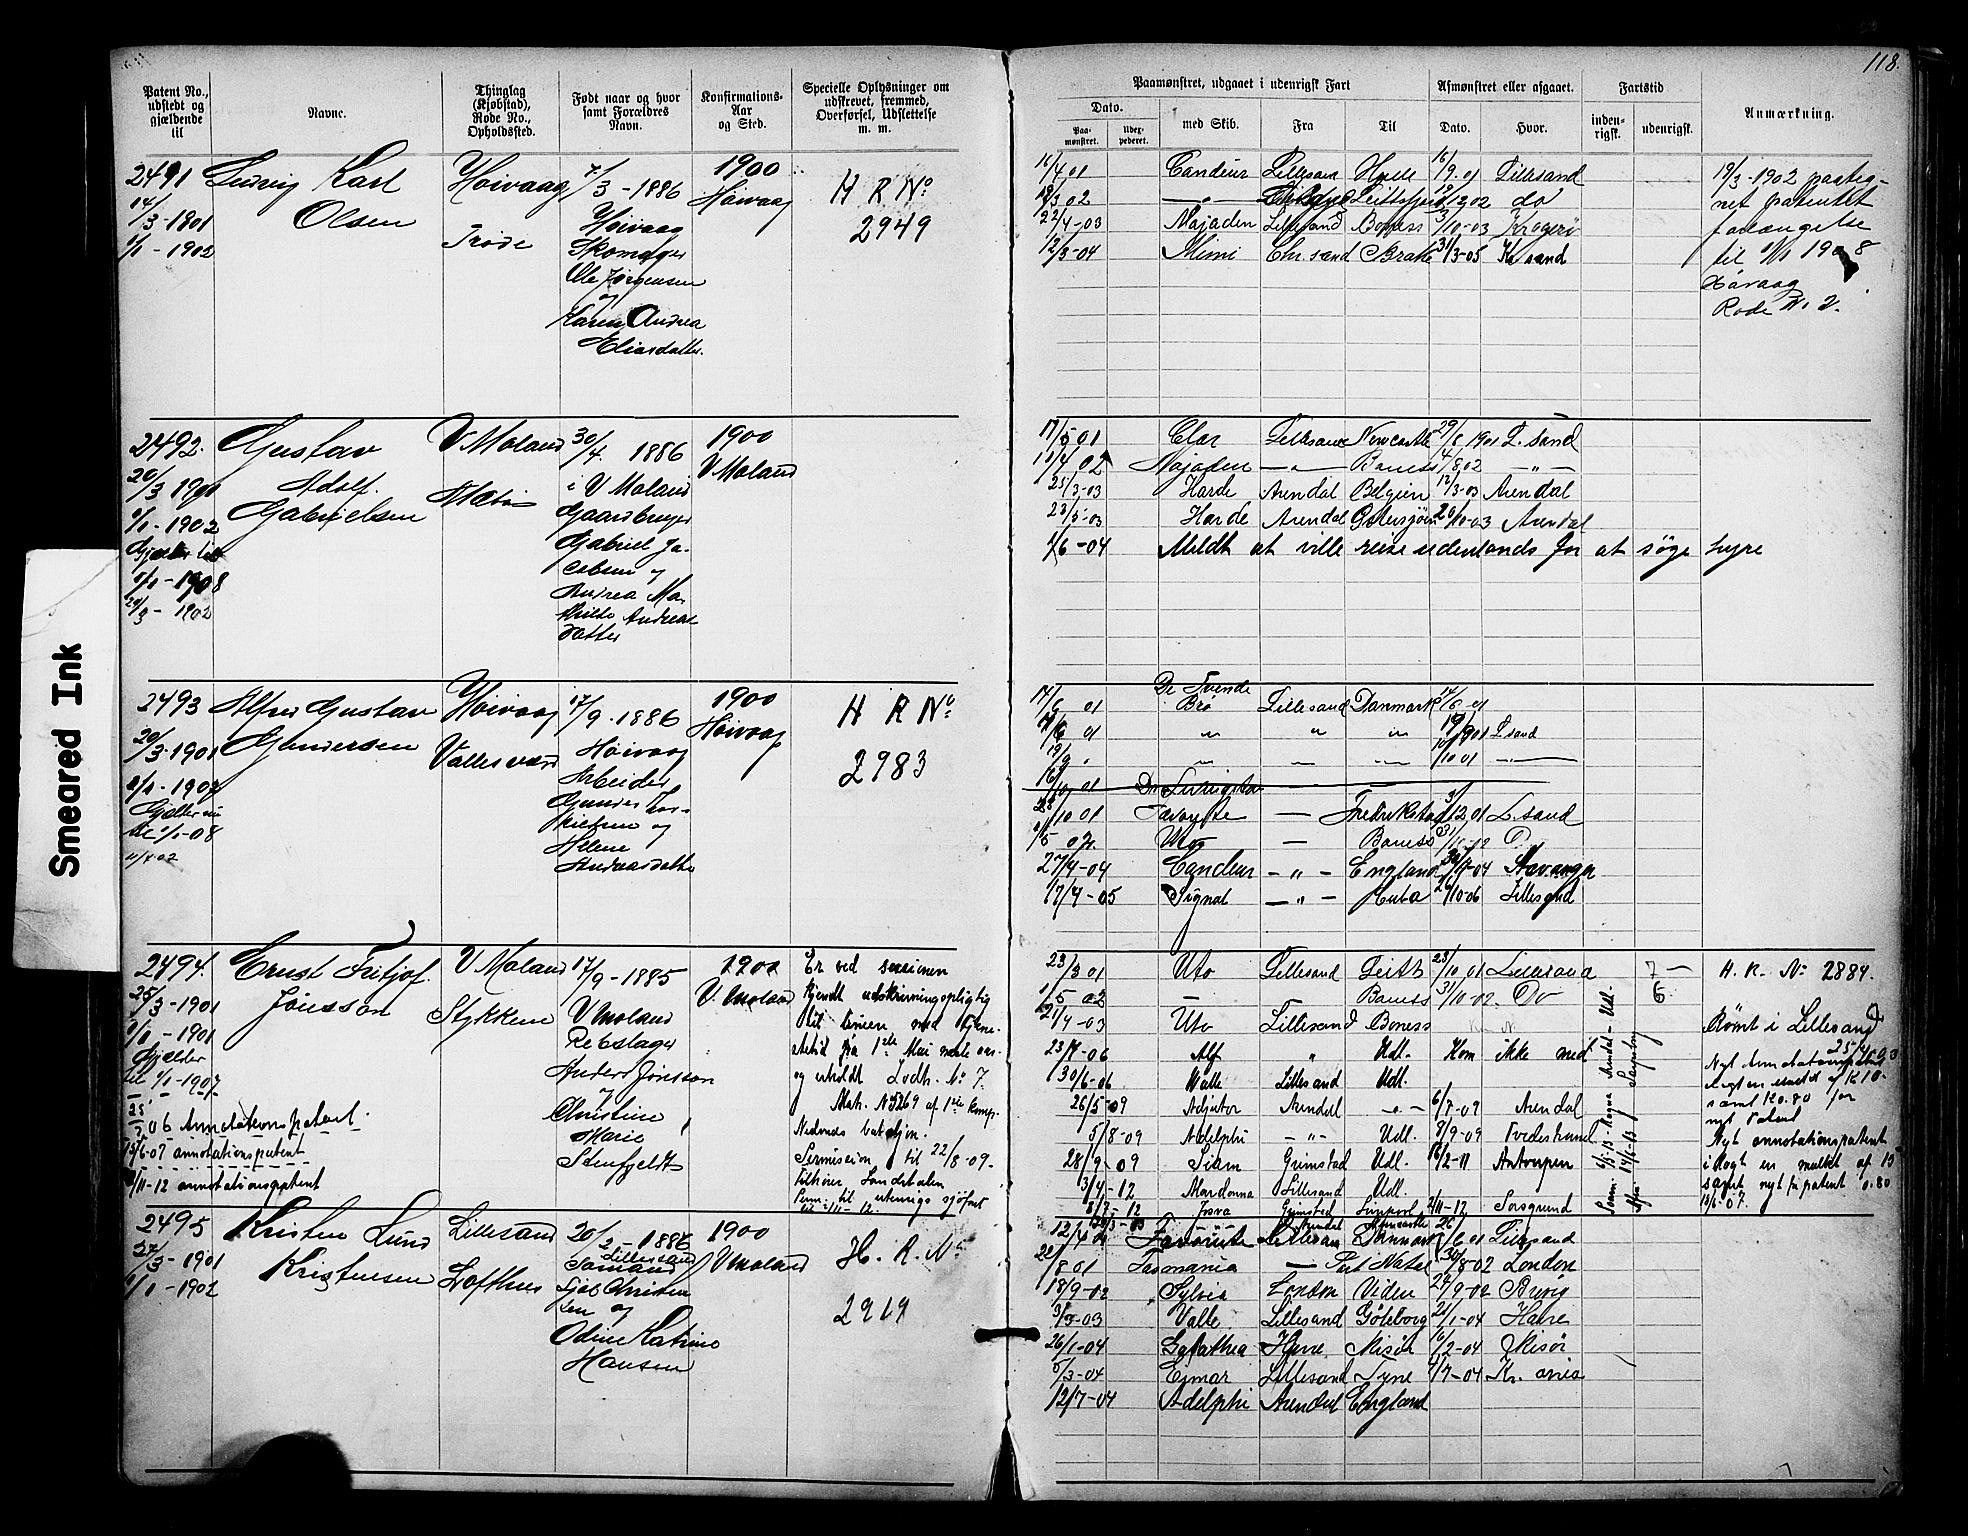 118.
Smeared Ink
Patent No., udstedt og gjældende til
Navne.
Thinglag (Kjøbstad), Rode No., Opholdssted.
Født naar og hvor samt Forældres Navn.
Konfirmations-Aar og Sted.
Specielle Oplysninger om udskrevet, fremmed, Overførsel, Udslettelse m. m.
Paamønstret, udgaaet i udenrigsk Fart
Afmønstret eller afgaaet.
Fartstid
Anmærkning.
Dato.
Paamønstret.
Udexpederet.
med Skib.
Fra
Til
Dato.
Hvor.
indenrigsk.
udenrigsk.
2491
14/3-1901
1/1-1902
Ludvig Karl
Olsen
Høivaag
Trøde
7/3-1886
Høivaag
Skomager
Ole Jørgensen
og
Karen Andrea
Eliasdatter.
1900
Høivaag
H R No
2949
16/4 01 Candeur Lillesand 16/9 01 Lillesand
02 do
22/4-03 Najaden Lillesand Boness 3/10-03 Kragerø
12/3-04 Mimi Chr.sand Brake 31/3-05 Kr sand
19/3-1902 paateg-
net patentet
forlængelse
til 1/1 1908
Høvaag
Rode No 2.
2492.
20/3 1901
1/1-1902
Gjælder til
1/1-1908
1902
Gustav
Adolf
Gabrielsen
V Moland
30/4. 1886
i V Moland
Gaardbruger
Gabriel Ja-
cobsen og
Andrea Ma-
Andreas
datter
1900
V Moland
17/5 01 Clar Lillesand Newcastle 29/8 1901 L.sand
02 Najaden -"- Boness 4/8 02 -"-
25/3-03 Harde Arendal Belgien 12/3-03 Arendal
23/5-03 Harde Arendal Østersjøen 20/10-03 Arendal
1/6-04 Meldt at ville reise udenlands for at søge hyre
2493
20/3-1901
1/1-1902
Gjælder nu
til 1/1-08
Alfred Gustav
Gundersen
Høivaag
Vallesværd
17/9-1886
Høivaag
Arbeider
Gunder Tor-
kildsen og
Helene
Andreasdatter
1900
Høivaag
H R No
2983
De Tvende
14/6 01 Brø Lillesand Danmark 14/6 01
01 " " " 19/9 01 L sand
19/9 " — " 10/10 01 —"—
10 01
23/10 01 Favorite — Fredrikstad 3/12 01 L.sand
02 Uto — Boness 31/10 02 Do
27/4-04 Candeur -"- England 04 Stavanger
17/4-05 Signal -"- Huba 26/10-06 Lillesand
2494.
25/3-1901
1/1-1901
Gjælder
til 1/1-1907
06 Annotationspatent.
15/6-07 annotationspatent
11-12 annotationspatent
Ernst Fritjof
Jönsson
V. Moland
Stykkene
17/9-1885
V Moland
Rebslager
Anders Jönsson
og
Christine
Marie
Stenfjeldt
1900
V. Moland
Er ved sessionen
kjendt udskrivningspligtig
til linien med tjene-
stetid fra 1ste Mai næste aar
og erholdt Lodtr. No 7.
Mat. No 5269 af 1ste komp.
Nedenæs bataljon.
Permission til 22/8-09.
tilhører Landstalen
Perm. til utenrigs sjøfart
23/3 01 Uto Lillesand Leith 23/10 01 Lillesand 7 —
1/5 02 — Boness 31/10-02 Do 6
21/4-03 Uto Lillesand Boness
23/7-06 Alf " Udl. Kom ikke med
30/6-06 Walle Lillesand Udl.
26/5-09 Adjutor Arendal -"- 6/7-09 Arendal
5/8-09 Adelphi -"- Udl. 8/9-09 Tvedestrand
28/9-09 Siam Grimstad Udl. 16/2-11 Antwerpen
3/4-12 Mardonna Lillesand Udl.
12 Josva Grimstad Liverpool 12 Porsgrund
6/5-13 Ragna Arendal - Udl.
14/6-13 Sarpsborg
H. R. No 2884.
Rømt i Lillesand
25/4-03
Nyt Annotationspatent
ilagt en mulkt af K 10-
samt K 0.80 for
nyt Patent
Nyt annotationspatent
ilagt en mulkt af 15
samt nyt pr patent 0.80
15/6-07.
2495
27/3-1901
1/1-1902
Kristen Lund
Kristensen
Lillesand
Lofthus
20/2-1886
Lillesand
Christen-
sen og
Odine Katrine
Hansen
1900
V Moland
H. R. No
2919
12/4 01 Favorite Lillesand Danmark 26/6 01 Lillesand
22/8 01 Tasmania — Port Natal 30/8-02 London
18/9-02 Sylvia London Viden 27/9-02 Brevig
03 Valle Lillesand Göteborg 21/1-04 Havre
26/1-04 Galathea Havre Risør 16/2-04 Risør
5/3-04 Ejnar Lillesand Tyne 4/7-04 Kr.ania
12/7-04 Adelphi Arendal England